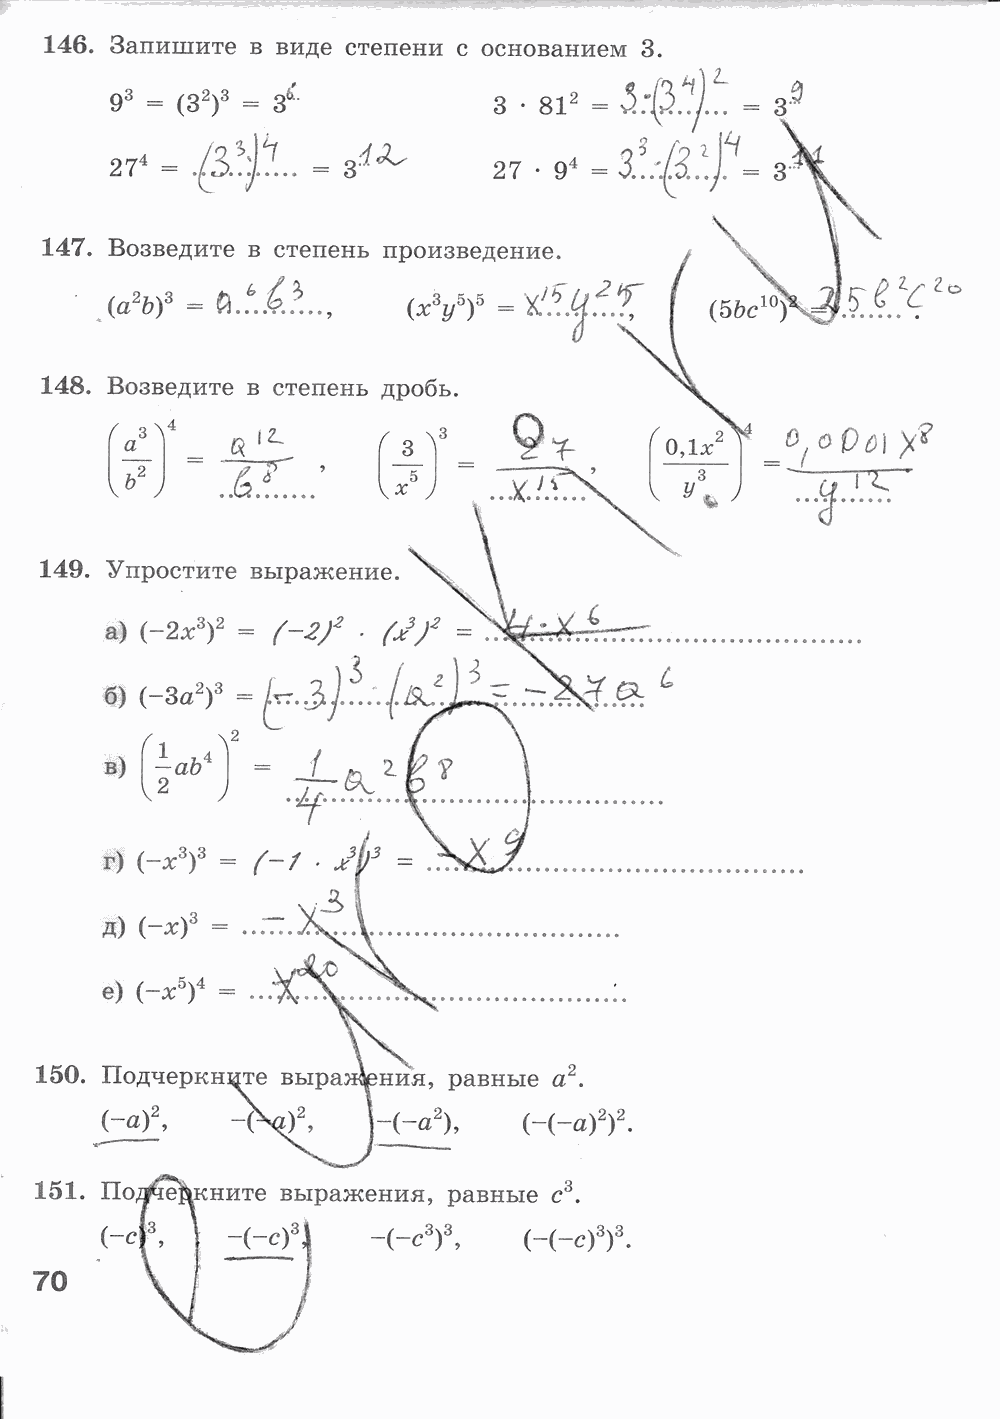 146. Запишите в виде степени с основанием 3.
9³ = (3²)³ = 3⁶ 3 · 81² = 3·(3⁴)² = 3⁹
27⁴ = (3³)⁴ = 3¹² 27 · 9⁴ = 3³·(3²)⁴ = 3¹¹
147. Возведите в степень произведение.
(a²b)³ = a⁶b³, (x³y⁵)⁵ = x¹⁵y²⁵, (5bc¹⁰)² = 25b²c²⁰.
148. Возведите в степень дробь.
(a³/b²)⁴ = a¹²/b⁸, (3/x⁵)³ = 27/x¹⁵, (0,1x²/y³)⁴ = 0,0001x⁸/y¹²
149. Упростите выражение.
а) (−2x³)² = (−2)² · (x³)² = 4·x⁶
б) (−3a²)³ = (−3)³·(a²)³ = −27a⁶
в) (1/2 ab⁴)² = 1/4 a²b⁸
г) (−x³)³ = (−1 · x³)³ = −x⁹
д) (−x)³ = −x³
е) (−x⁵)⁴ = x²⁰
150. Подчеркните выражения, равные a².
(−a)², −(−a)², −(−a²), (−(−a)²)².
151. Подчеркните выражения, равные c³.
(−c)³, −(−c)³, −(−c³)³, (−(−c)³)³.
70